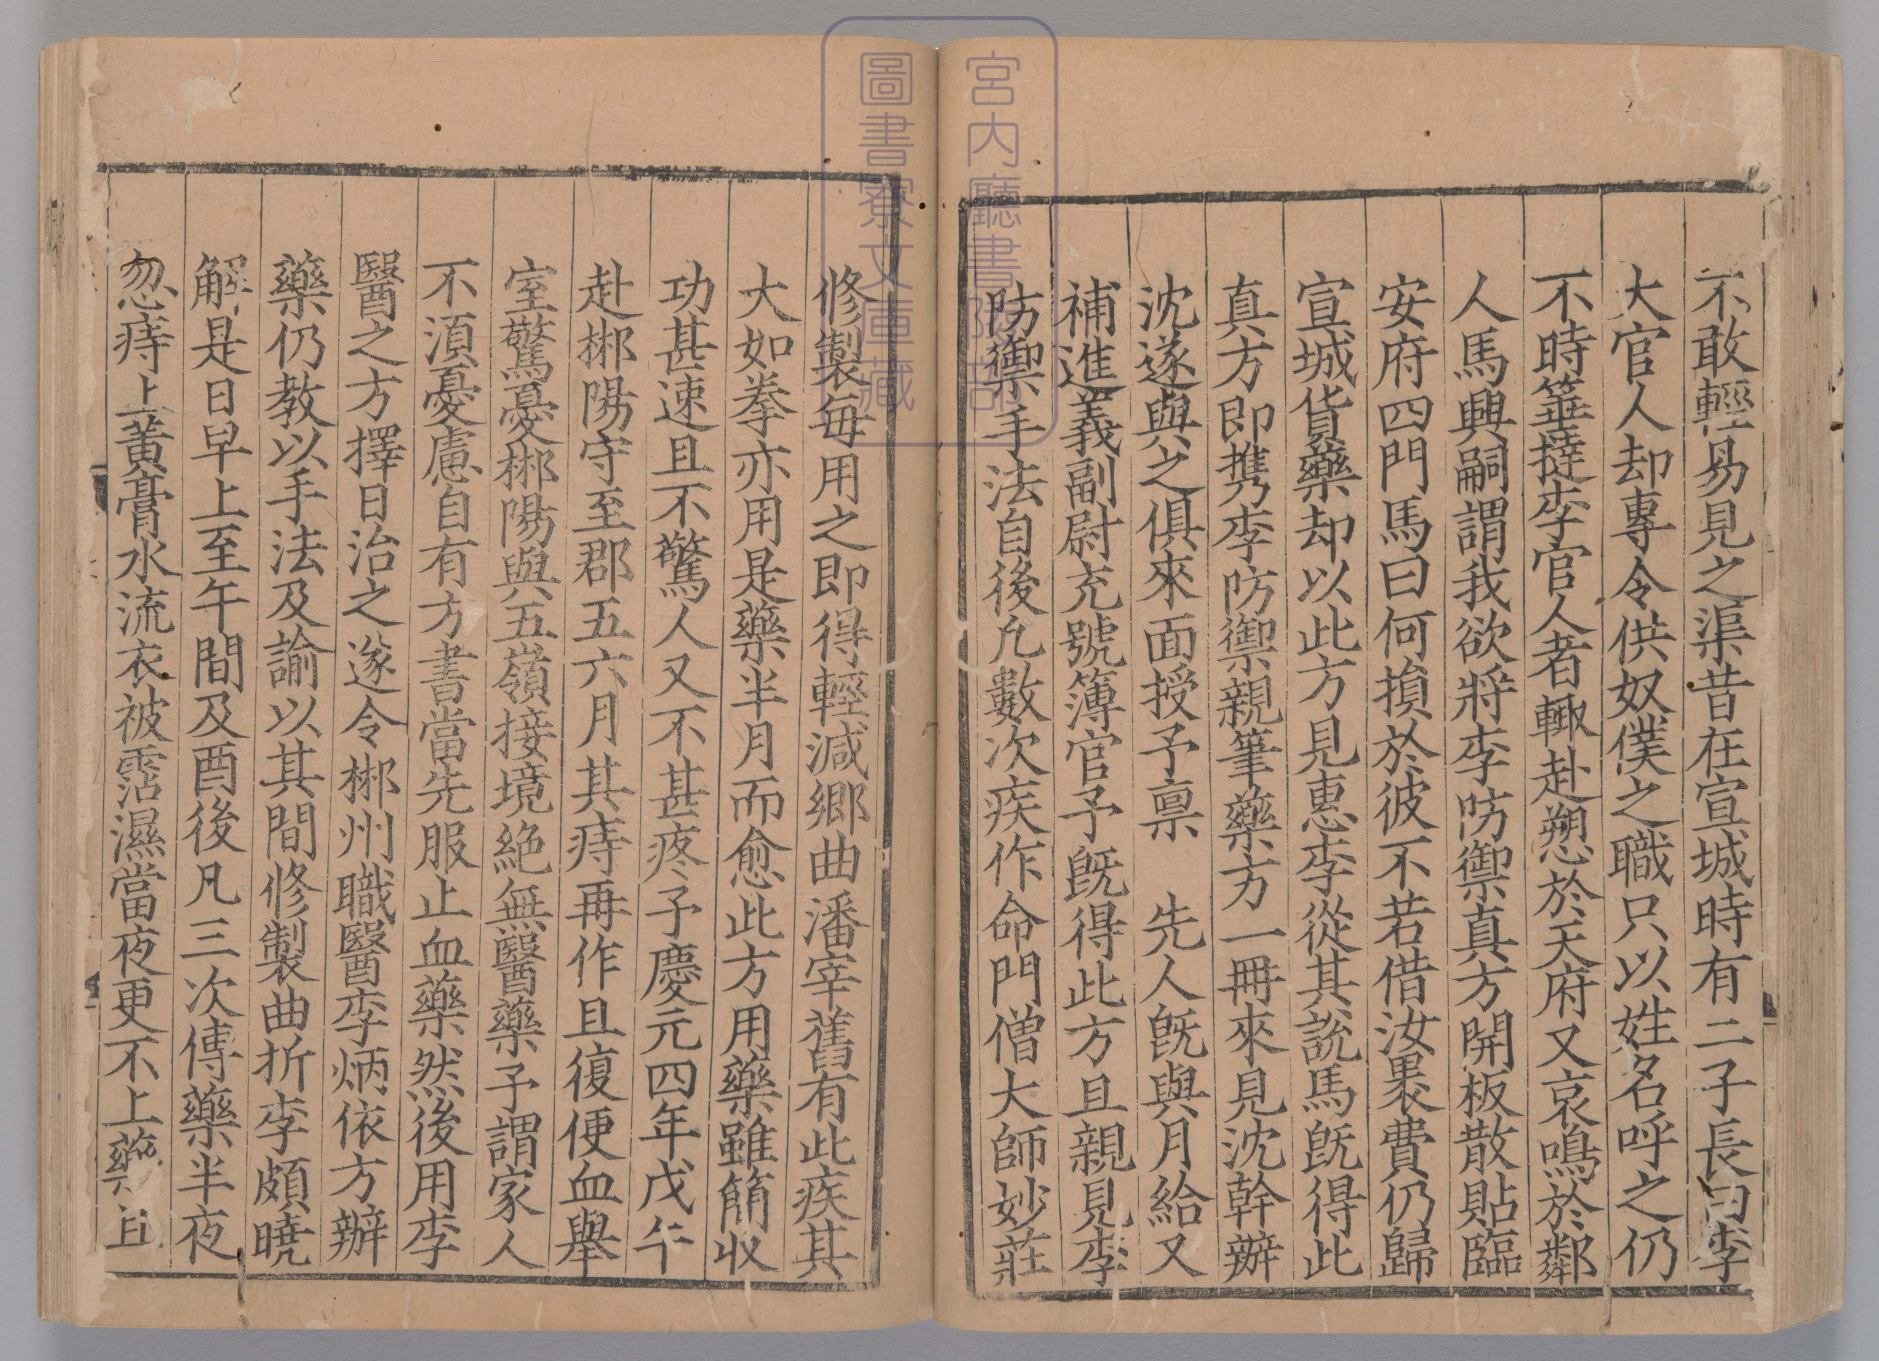 不敢輕易見之渠昔在宣城時有二子長曰李
大官人却專令供奴僕之職只以姓名呼之仍
不時箠撻李官人者輙赴愬於天府又哀鳴於鄰
人馬興嗣謂我欲將李防禦真方開板散貼臨
安府四門馬曰何損於彼不若借汝裹費仍歸
宣城貨藥却以此方見惠李從其說馬旣得此
真方即携李防禦親筆藥方一冊來見沈幹辦
沈遂與之俱來面授予禀　先人旣與月給又
補進義副尉充號簿官予旣得此方且親見李
防禦手法自後凢數次疾作命門僧大師妙莊
修製每用之即得輕減鄉曲潘宰舊有此疾其
大如拳亦用是藥半月而愈此方用藥雖簡收
功甚速且不驚人又不甚疼予慶元四年戊午
赴郴陽守至郡五六月其痔再作且復便血舉
室驚憂郴陽與五嶺接境絶無醫藥予謂家人
不須憂慮自有方書當先服止血藥然後用李
醫之方擇日治之遂令郴州職醫李炳依方辦
藥仍教以手法及諭以其間修製曲折李頗曉
解是日早上至午間及酉後凡三次傅藥半夜
忽痔上黃膏水流衣被霑濕當夜更不上藥且
宮内廳書陵部
圖書寮文庫藏